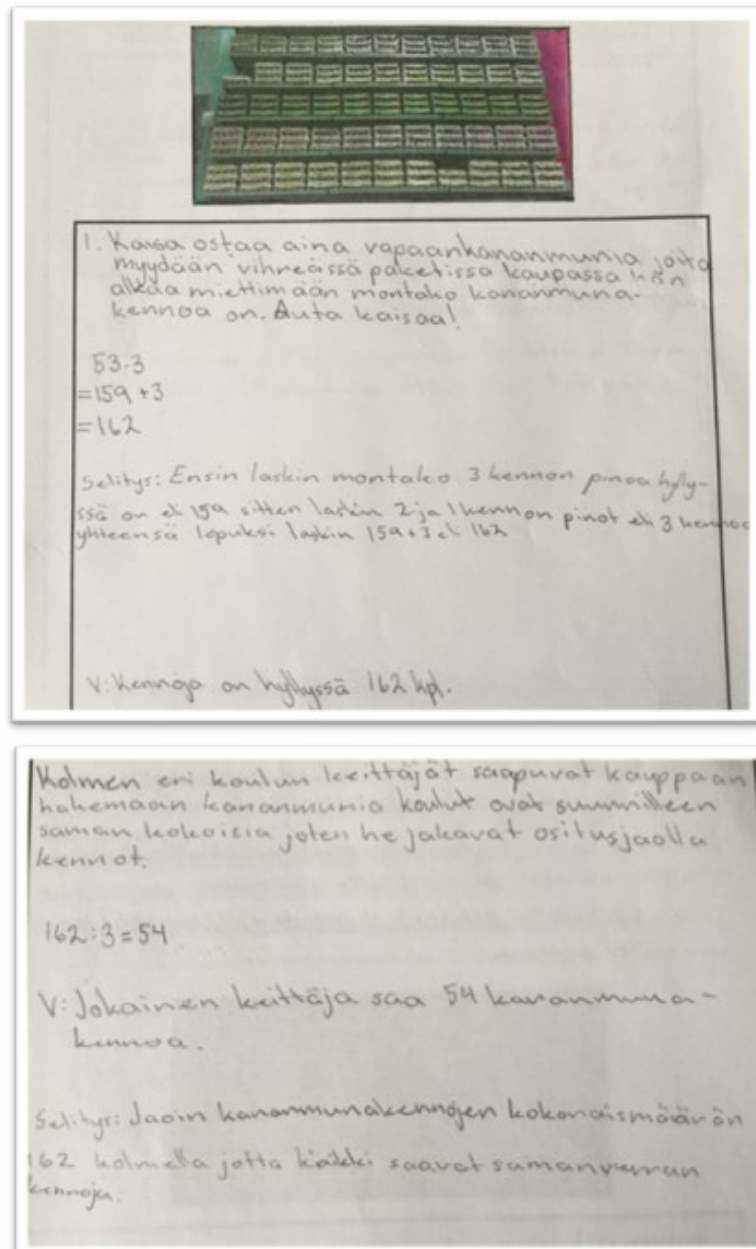 1. Kaisa ostaa aina vapaankananmunia joita
myydään vihreässä paketissa kaupassa hän
alkaa miettimään montako kananmuna-
kennoa on. Auta kaisaa!
53·3
=159+3
=162
Selitys: Ensin laskin montako 3 kennon pinoa hylly-
ssä on eli 159 sitten laskin 2 ja 1 kennon pinot eli 3 kennoa
yhteensä lopuksi laskin 159+3 eli 162
V: Kennoja on hyllyssä 162 kpl.
Kolmen eri koulun keittäjät saapuvat kauppaan
hakemaan kananmunia koulut ovat suunnilleen
saman kokoisia joten he jakavat ositusjaolla
kennot.
162:3=54
V: Jokainen keittäjä saa 54 kananmuna-
kennoa.
Selitys: Jaoin kananmunakennojen kokonaismäärän
162 kolmella jotta kaikki saavat samanverran
kennoja.